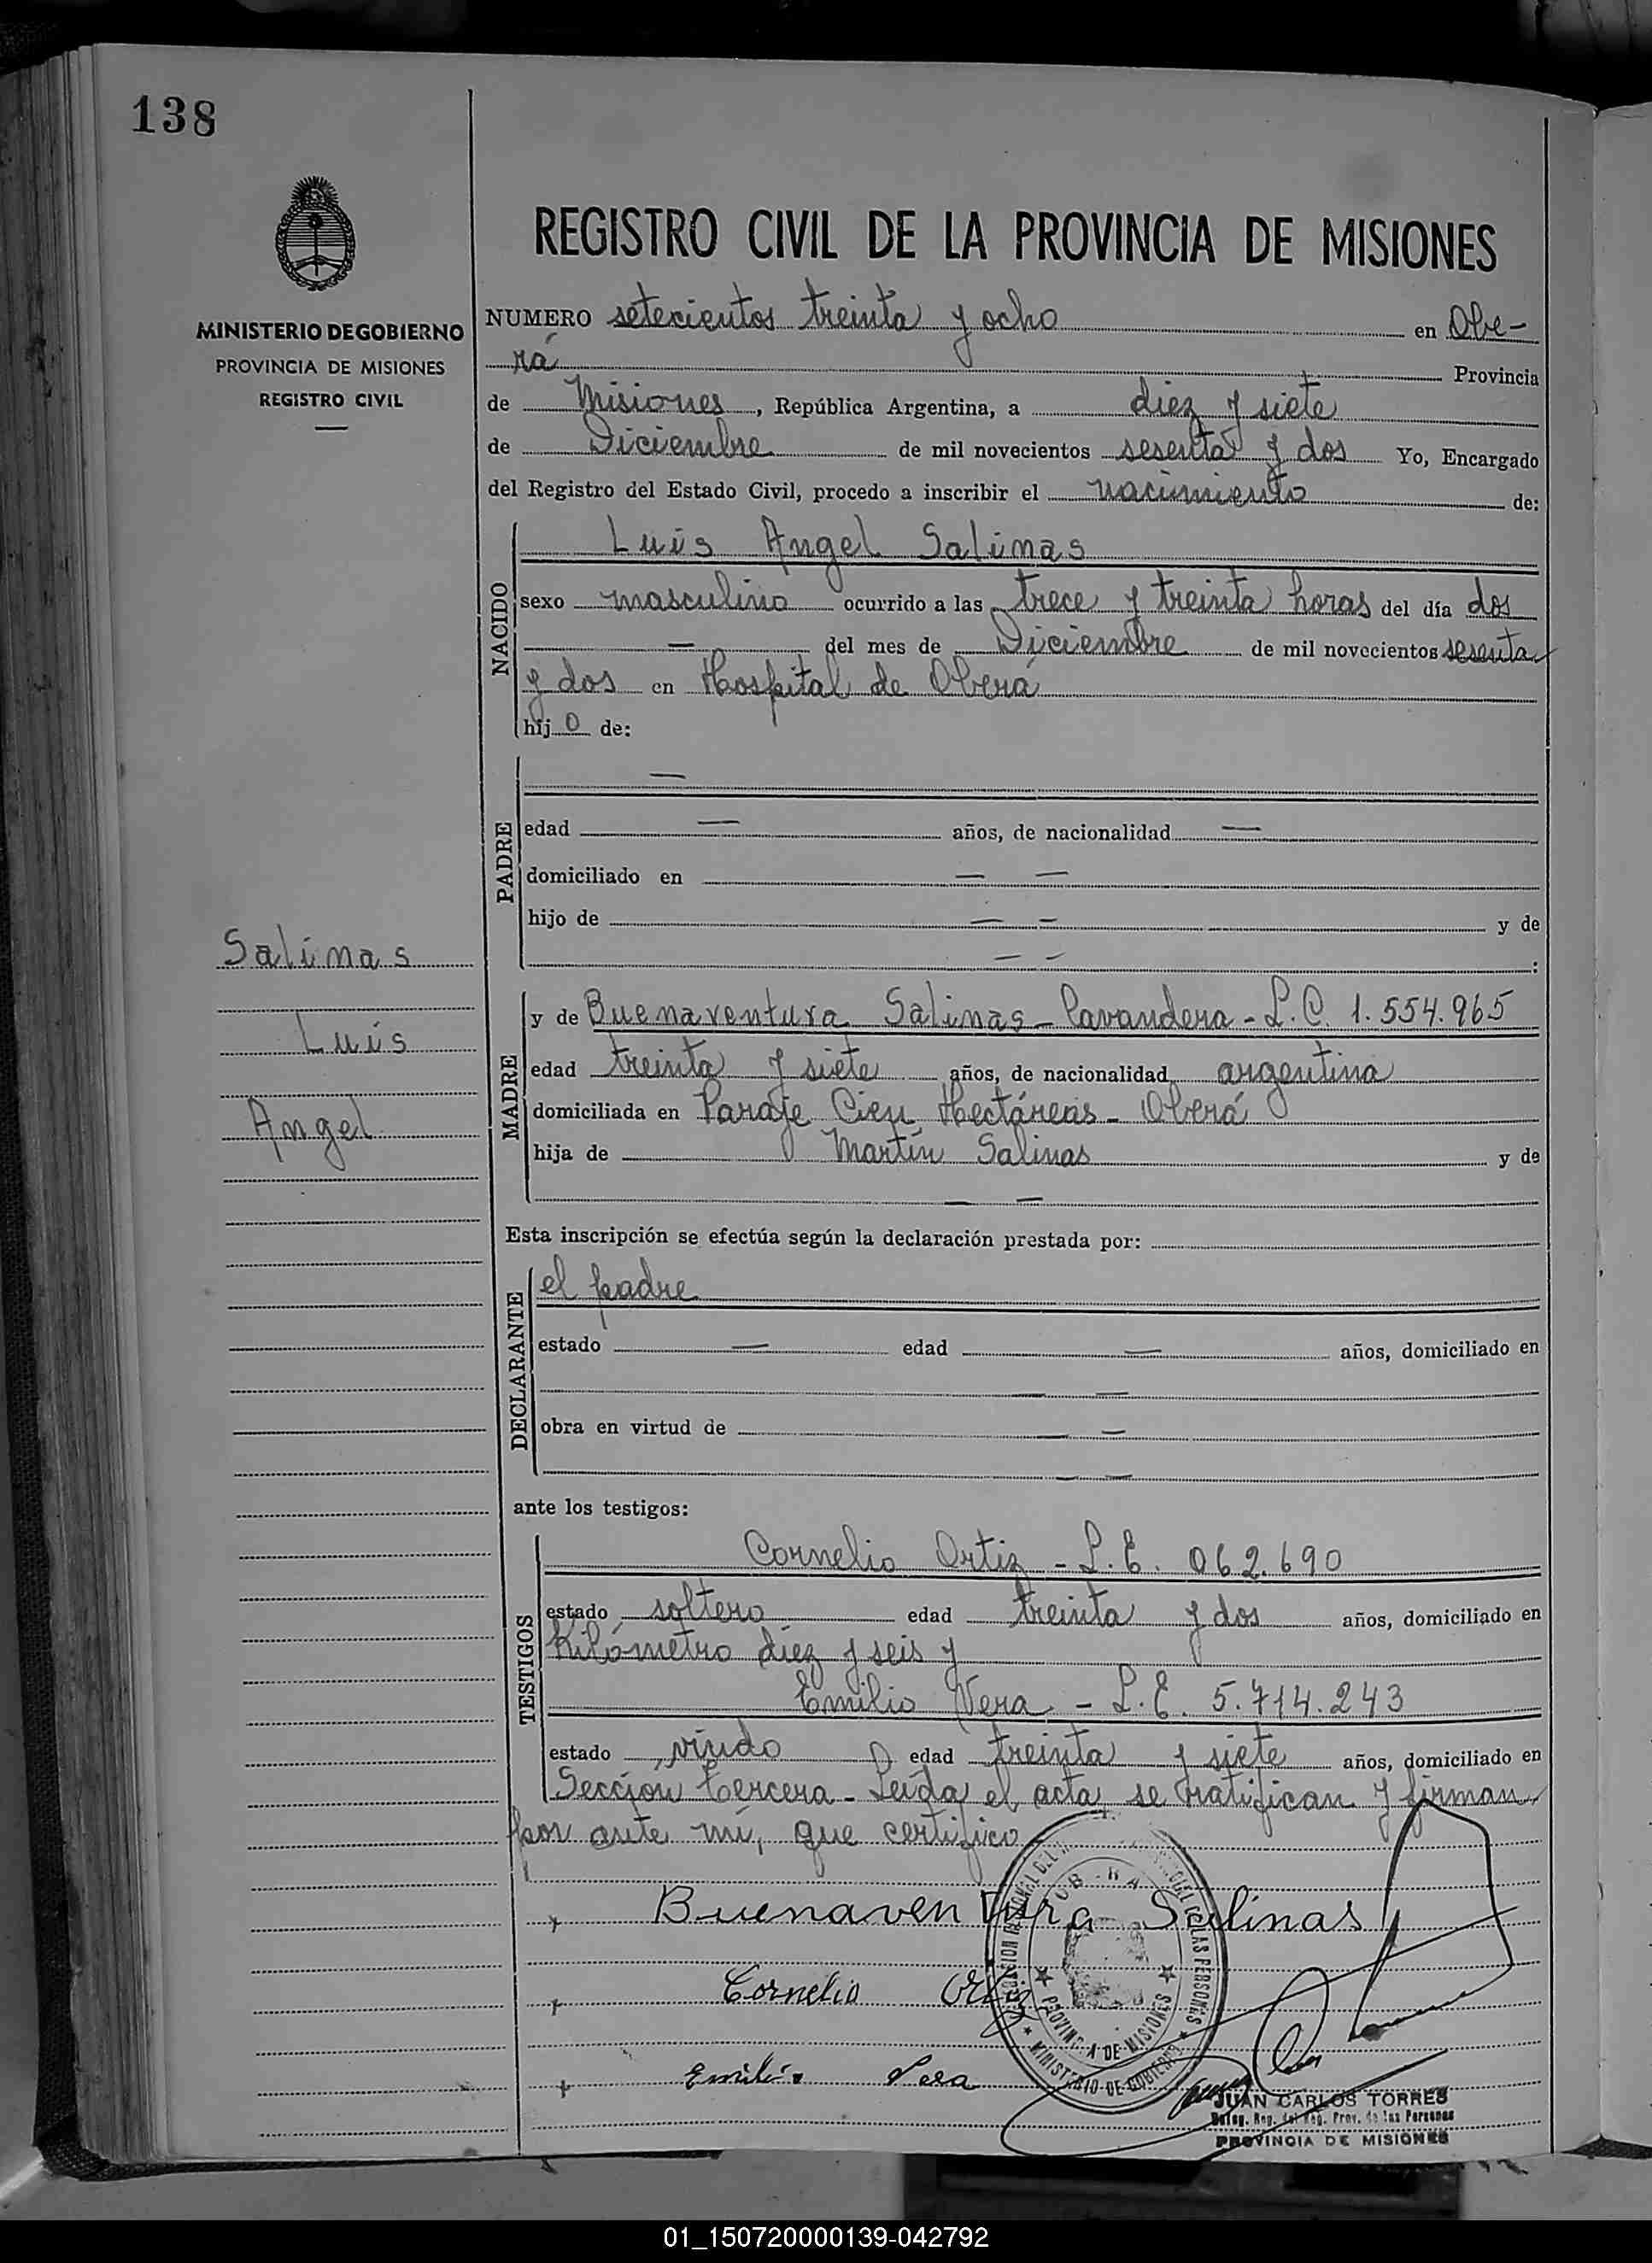 138
REGISTRO CIVIL DE LA PROVINCIA DE MISIONES
MINISTERIO DE GOBIERNO
PROVINCIA DE MISIONES
REGISTRO CIVIL
NUMERO setecientos treinta y ocho en Obe-
rá Provincia
de Misiones, República Argentina, a diez y siete
de Diciembre de mil novecientos sesenta y dos Yo, Encargado
del Registro del Estado Civil, procedo a inscribir el nacimiento de:
NACIDO
Luis Angel Salinas
sexo masculino ocurrido a las trece y treinta horas del día dos
— del mes de Diciembre de mil novecientos sesenta
y dos en Hospital de Oberá
hijo de:
PADRE
—
edad — años, de nacionalidad —
domiciliado en — —
hijo de — — y de
— — :
Salinas
Luis
Angel
MADRE
y de Buenaventura Salinas - lavandera - L.C. 1.554.965
edad treinta y siete años, de nacionalidad argentina
domiciliada en Paraje Cien Hectáreas - Oberá
hija de Martín Salinas y de
— —
Esta inscripción se efectúa según la declaración prestada por:
DECLARANTE
el padre
estado — edad — años, domiciliado en
— —
obra en virtud de — —
— —
ante los testigos:
TESTIGOS
Cornelio Ortiz - L.E. 062.690
estado soltero edad treinta y dos años, domiciliado en
Kilómetro diez y seis y
Emilio Vera - L.E. 5.714.243
estado viudo edad treinta y siete años, domiciliado en
Sección tercera - Leída el acta se ratifican y firman
por ante mí, que certifico
Buenaventura Salinas
Cornelio Ortiz
Emilio Vera
PROVINCIA DE MISIONES
MINISTERIO DE GOBIERNO
JUAN CARLOS TORRES
Deleg. Reg. del Reg. Prov. de las Personas
PROVINCIA DE MISIONES
01_150720000139-042792